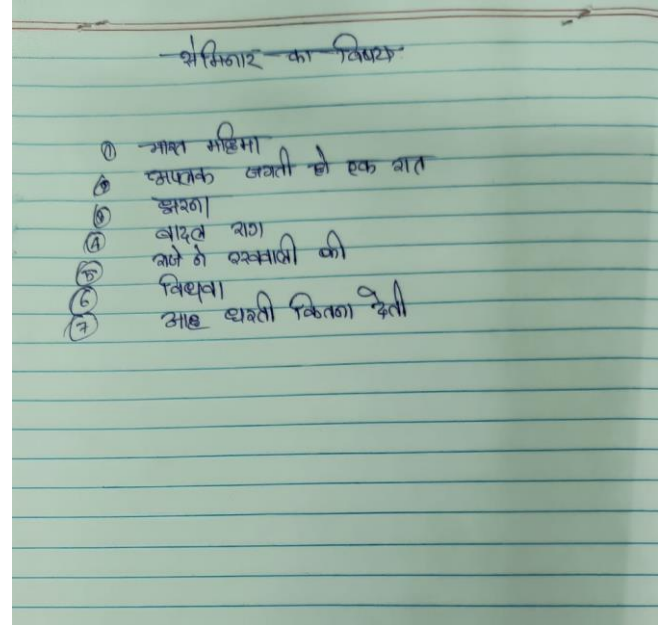 सेमिनार का विषय
① भारत महिमा
② जगती हो एक रात
③ झरना
④ बादल राग
⑤ राजे ने रखवाली की
⑥ विधवा
⑦ आह धरती कितना देती